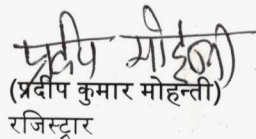 प्रदीप मोहन्ती
(प्रदीप कुमार मोहन्ती)
रजिस्ट्रार